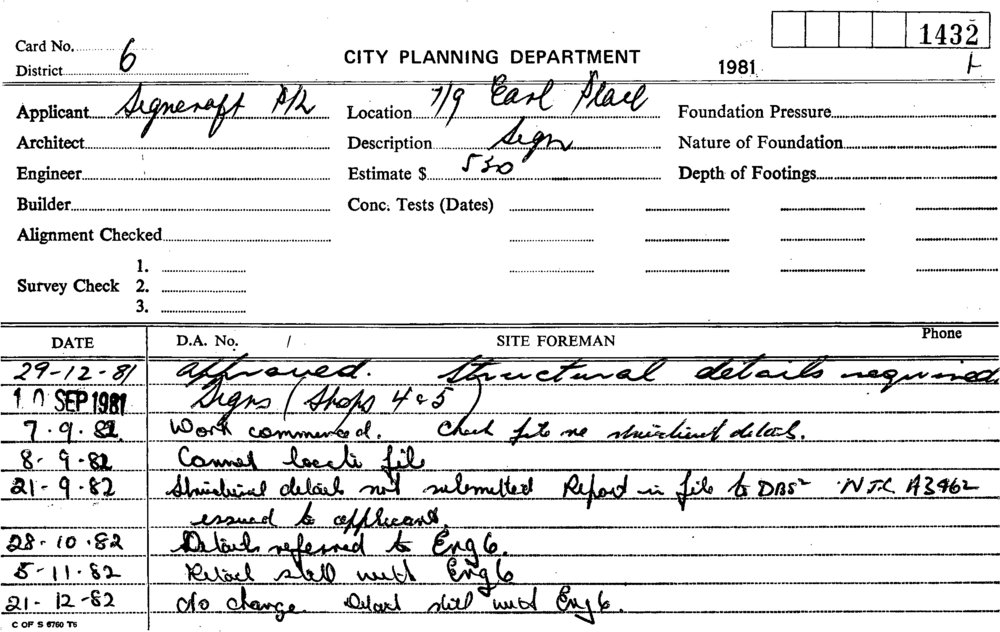 1432
Card No. 6
District
CITY PLANNING DEPARTMENT
1981
Applicant Signcraft P/L Location 7/9 Earl Place Foundation Pressure
Architect Description Sign Nature of Foundation
Engineer Estimate $ 530 Depth of Footings
Builder Conc. Tests (Dates)
Alignment Checked
1.
Survey Check 2.
3.
DATE D.A. No. / SITE FOREMAN Phone
29-12-81 approved. Structural details required.
10 SEP 1981 Signs (Shops 4 & 5)
7.9.82 Work commenced. Check file re structural details.
8-9-82 Cannot locate file
21-9-82 Structural details not submitted Report in file to DBS NTC A3462
issued to applicant.
28-10-82 Details referred to Eng 6.
5-11-82 Detail still with Eng 6
21-12-82 No change. Detail still with Eng 6.
C OF S 6760 T6